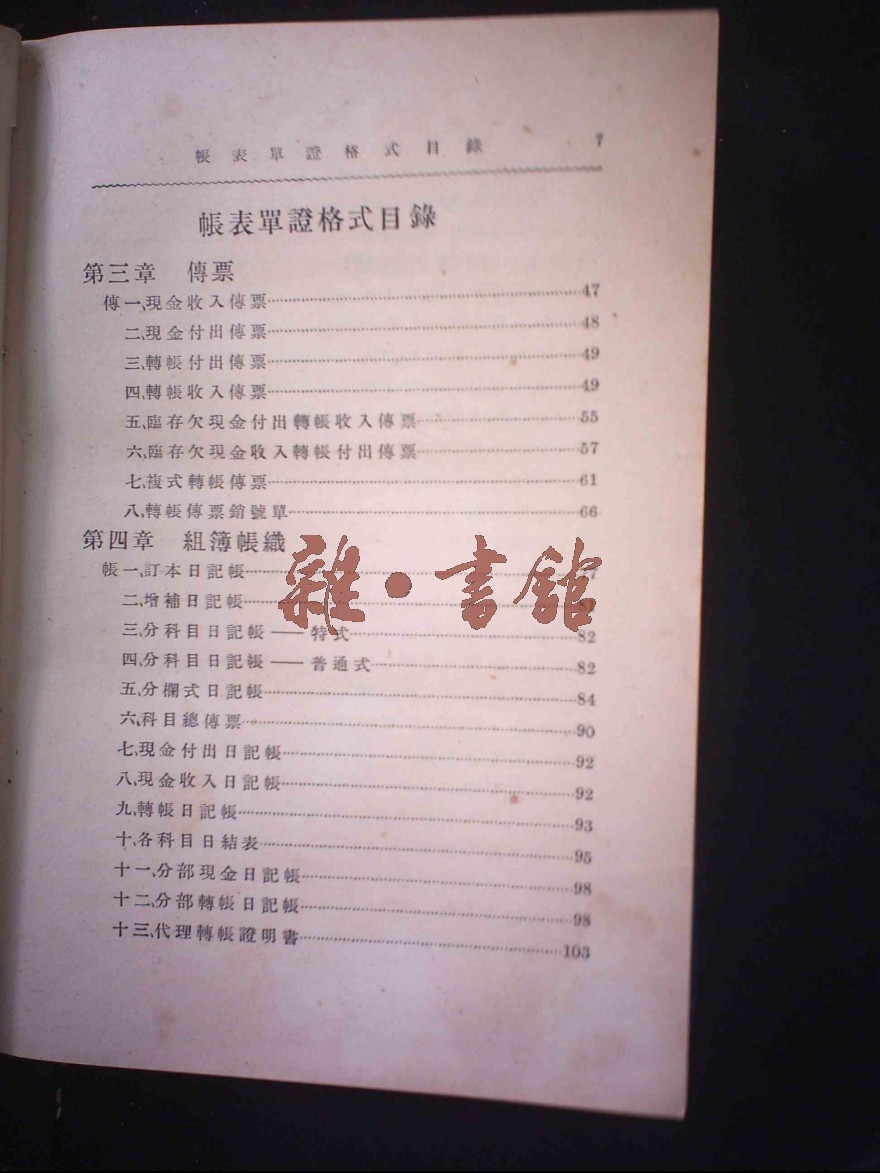 帳表單證格式目錄 7
帳表單證格式目錄
第三章 傳票
傳一、現金收入傳票……47
二、現金付出傳票……48
三、轉帳付出傳票……49
四、轉帳收入傳票……49
五、臨存欠現金付出轉帳收入傳票……55
六、臨存欠現金收入轉帳付出傳票……57
七、複式轉帳傳票……61
八、轉帳傳票銷號單……66
第四章 組簿帳織
帳一、訂本日記帳……7
二、增補日記帳……81
三、分科目日記帳——特式……82
四、分科目日記帳——普通式……82
五、分欄式日記帳……84
六、科目總傳票……90
七、現金付出日記帳……92
八、現金收入日記帳……92
九、轉帳日記帳……93
十、各科目日結表……95
十一、分部現金日記帳……98
十二、分部轉帳日記帳……98
十三、代理轉帳證明書……103
雜·書館